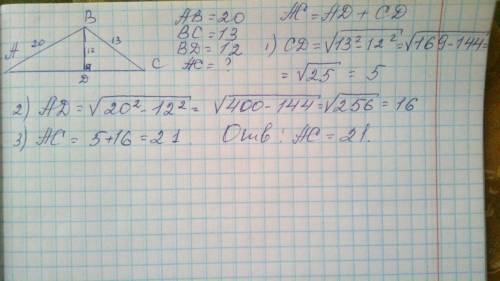 B
A
20
12
13
D
C
AB = 20
BC = 13
BD = 12
AC = ?
AC = AD + CD
1) CD = √13² - 12² = √169 - 144 =
= √25 = 5
2) AD = √20² - 12² = √400 - 144 = √256 = 16
3) AC = 5 + 16 = 21. Отв: AC = 21.